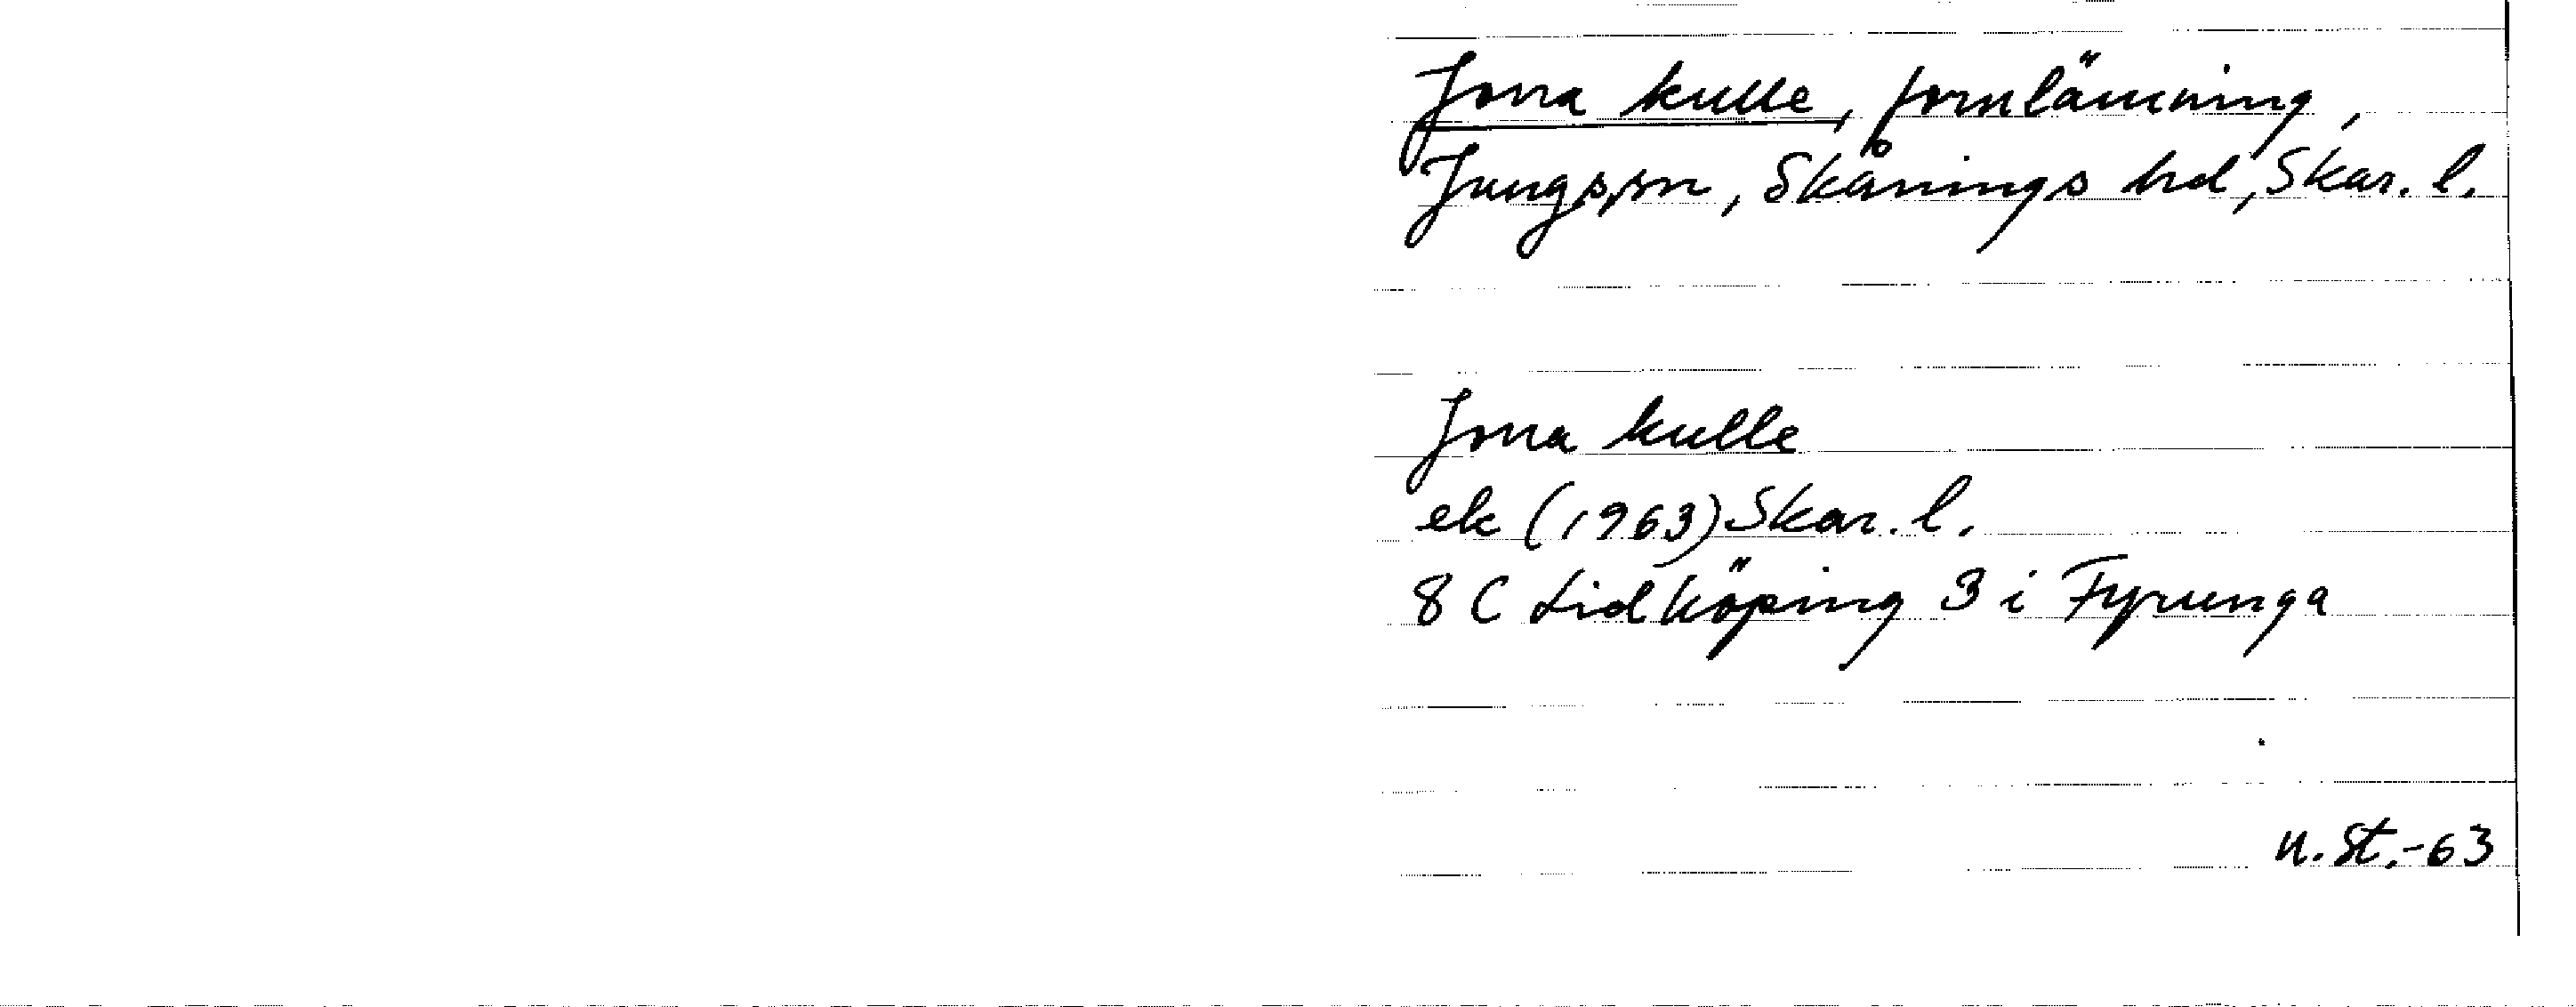 Jona kulle, fornlämning,
Jungs sn, Skånings hd, Skar. l.
Jona kulle
ek (1963) Skar. l.
8 C Lidköping 3 i Fyrunga
N. St. -63